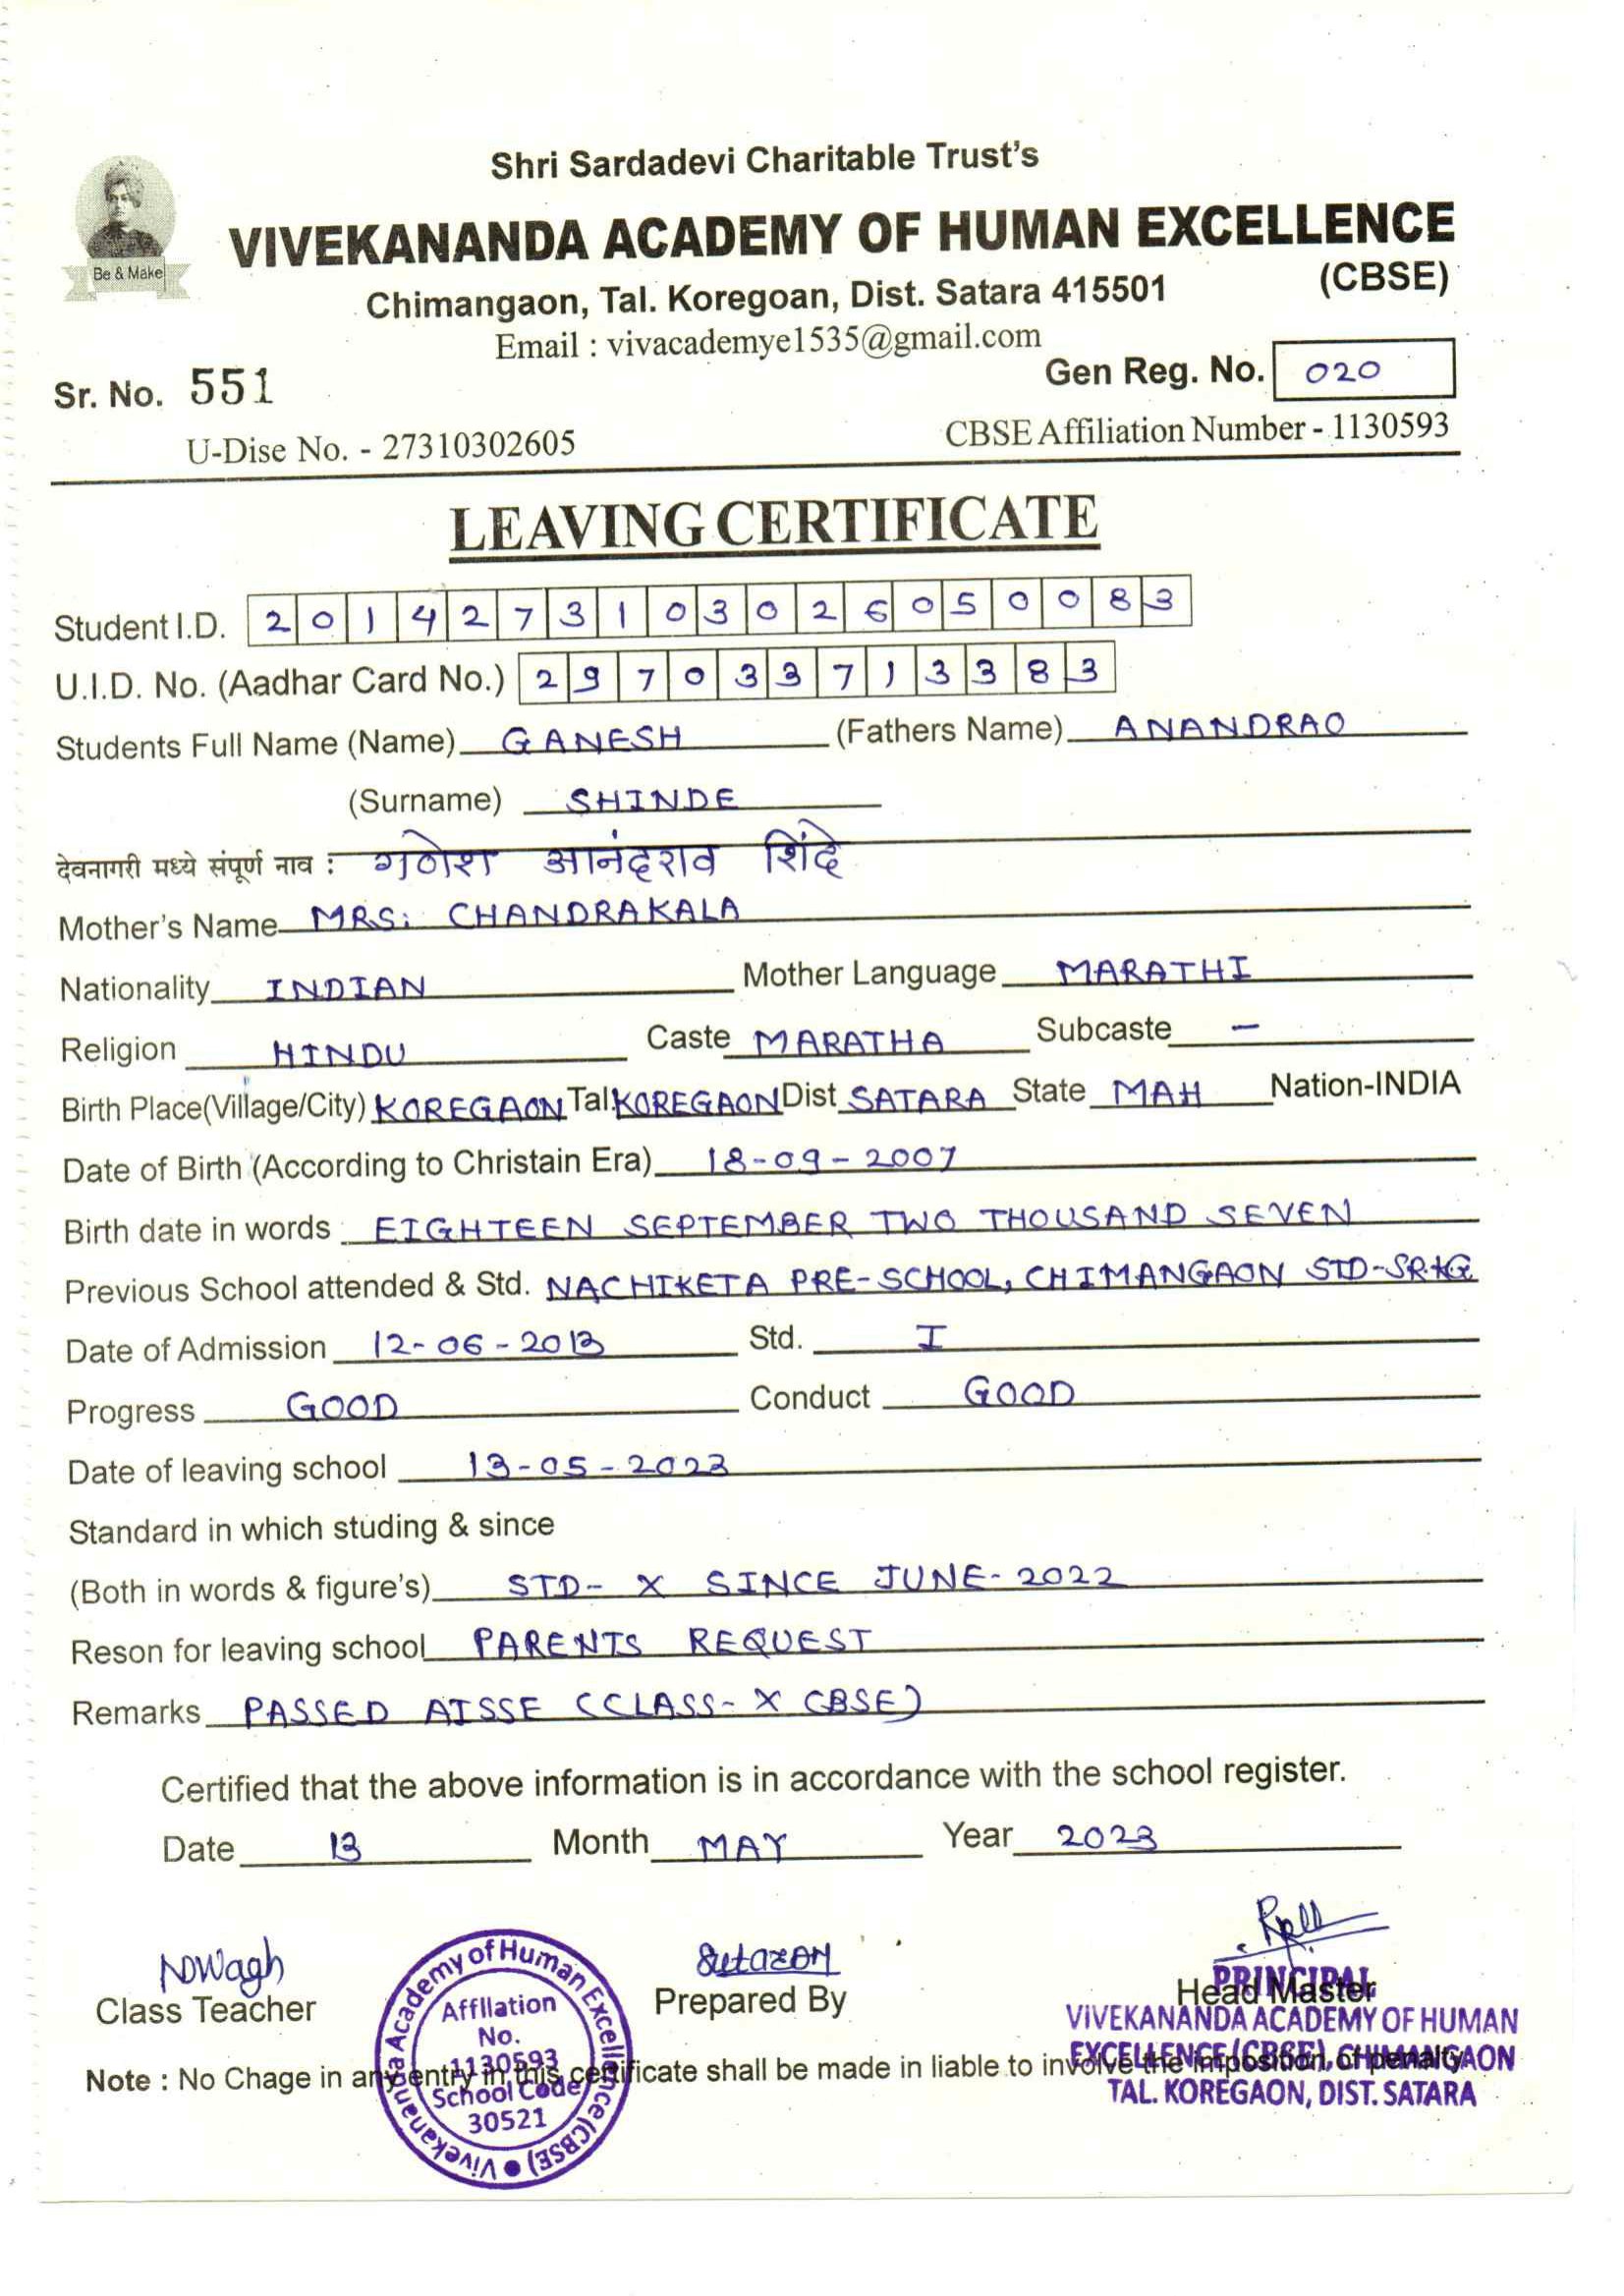 Shri Sardadevi Charitable Trust's
Be & Make
VIVEKANANDA ACADEMY OF HUMAN EXCELLENCE
(CBSE)
Chimangaon, Tal. Koregoan, Dist. Satara 415501
Email : vivacademye1535@gmail.com
Sr. No. 551 Gen Reg. No. 020
U-Dise No. - 27310302605 CBSE Affiliation Number - 1130593
LEAVING CERTIFICATE
Student I.D. 2014273103026050083
U.I.D. No. (Aadhar Card No.) 297033713383
Students Full Name (Name) GANESH (Fathers Name) ANANDRAO
(Surname) SHINDE
देवनागरी मध्ये संपूर्ण नाव : गणेश आनंदराव शिंदे
Mother's Name MRS. CHANDRAKALA
Nationality INDIAN Mother Language MARATHI
Religion HINDU Caste MARATHA Subcaste –
Birth Place(Village/City) KOREGAON Tal. KOREGAON Dist SATARA State MAH Nation-INDIA
Date of Birth (According to Christain Era) 18-09-2007
Birth date in words EIGHTEEN SEPTEMBER TWO THOUSAND SEVEN
Previous School attended & Std. NACHIKETA PRE-SCHOOL, CHIMANGAON STD-SR.KG
Date of Admission 12-06-2013 Std. I
Progress GOOD Conduct GOOD
Date of leaving school 13-05-2023
Standard in which studing & since
(Both in words & figure's) STD- X SINCE JUNE-2022
Reson for leaving school PARENTS REQUEST
Remarks PASSED AISSE (CLASS- X CBSE)
Certified that the above information is in accordance with the school register.
Date 13 Month MAY Year 2023
NDWagh
Class Teacher
Vivekananda Academy of Human Excellence (CBSE)
Affilation
No.
1130593
School Code
30521
Prepared By
Head Master
PRINCIPAL
VIVEKANANDA ACADEMY OF HUMAN
EXCELLENCE (CBSE), CHIMANGAON
TAL. KOREGAON, DIST. SATARA
Note : No Chage in any entry in this certificate shall be made in liable to involve the imposition of penalty.